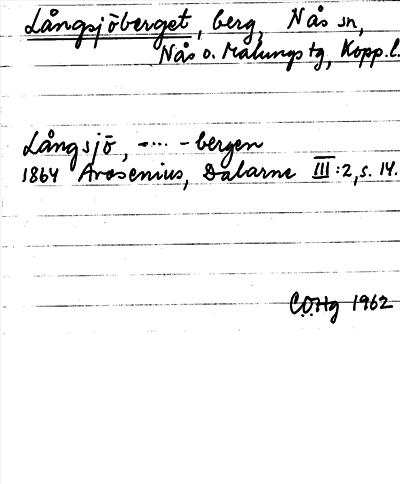 Långsjöberget, berg, Nås sn,
Nås o. Malungs tg, Kopp.l.
Långsjö, -.... -bergen
1864 Arosenius, Dalarne III:2, s. 14.
C.O.Hg 1962